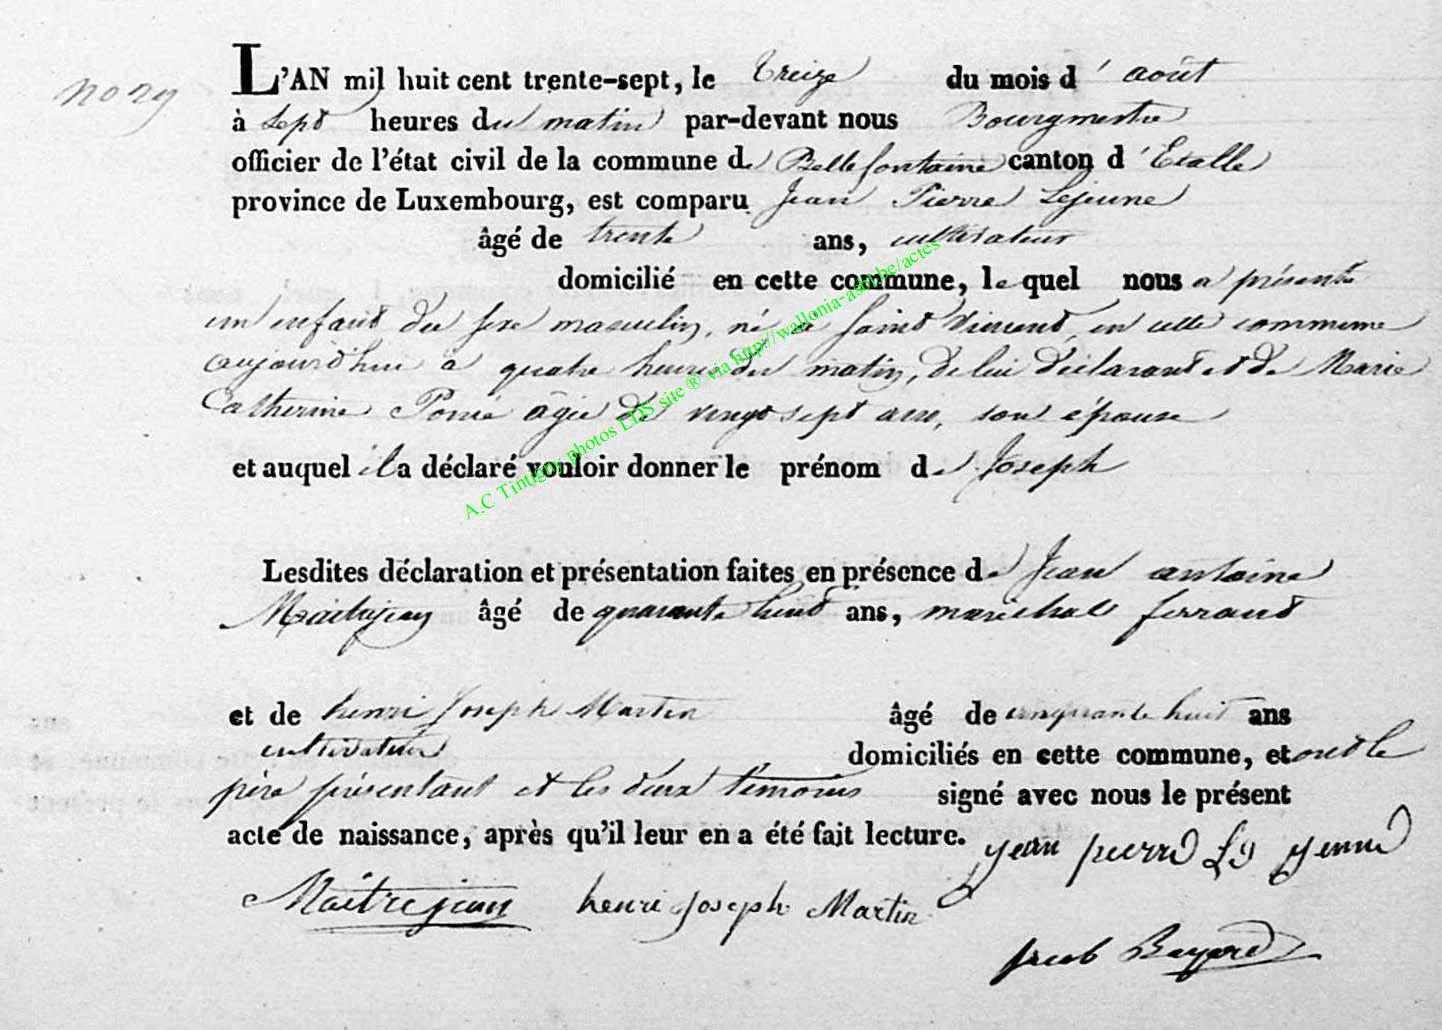 No 29
L'AN mil huit cent trente-sept, le treize du mois d'août
à sept heures du matin par-devant nous Bourgmestre
officier de l'état civil de la commune de Bellefontaine canton d'Etalle
province de Luxembourg, est comparu Jean Pierre Lejeune
âgé de trente ans, cultivateur
domicilié en cette commune, lequel nous a présenté
un enfant du sexe masculin, né à Saint Vincent, en cette commune
aujourd'hui à quatre heures du matin, de lui déclarant et de Marie
Catherine Ponsé âgée de vingt sept ans, son épouse
et auquel il a déclaré vouloir donner le prénom de Joseph
Lesdites déclaration et présentation faites en présence de Jean antoine
Maitrejean âgé de quarante huit ans, maréchal ferrant
et de henri Joseph Martin âgé de cinquante huit ans
cultivateur domiciliés en cette commune, et ont le
père présentant et les deux témoins signé avec nous le présent
acte de naissance, après qu'il leur en a été fait lecture. jean pierre
Maîtrejean henri joseph Martin
Jacob Bayard
A.C Tintigny photos LDS site ® via http://wallonia-asbl.be/actes